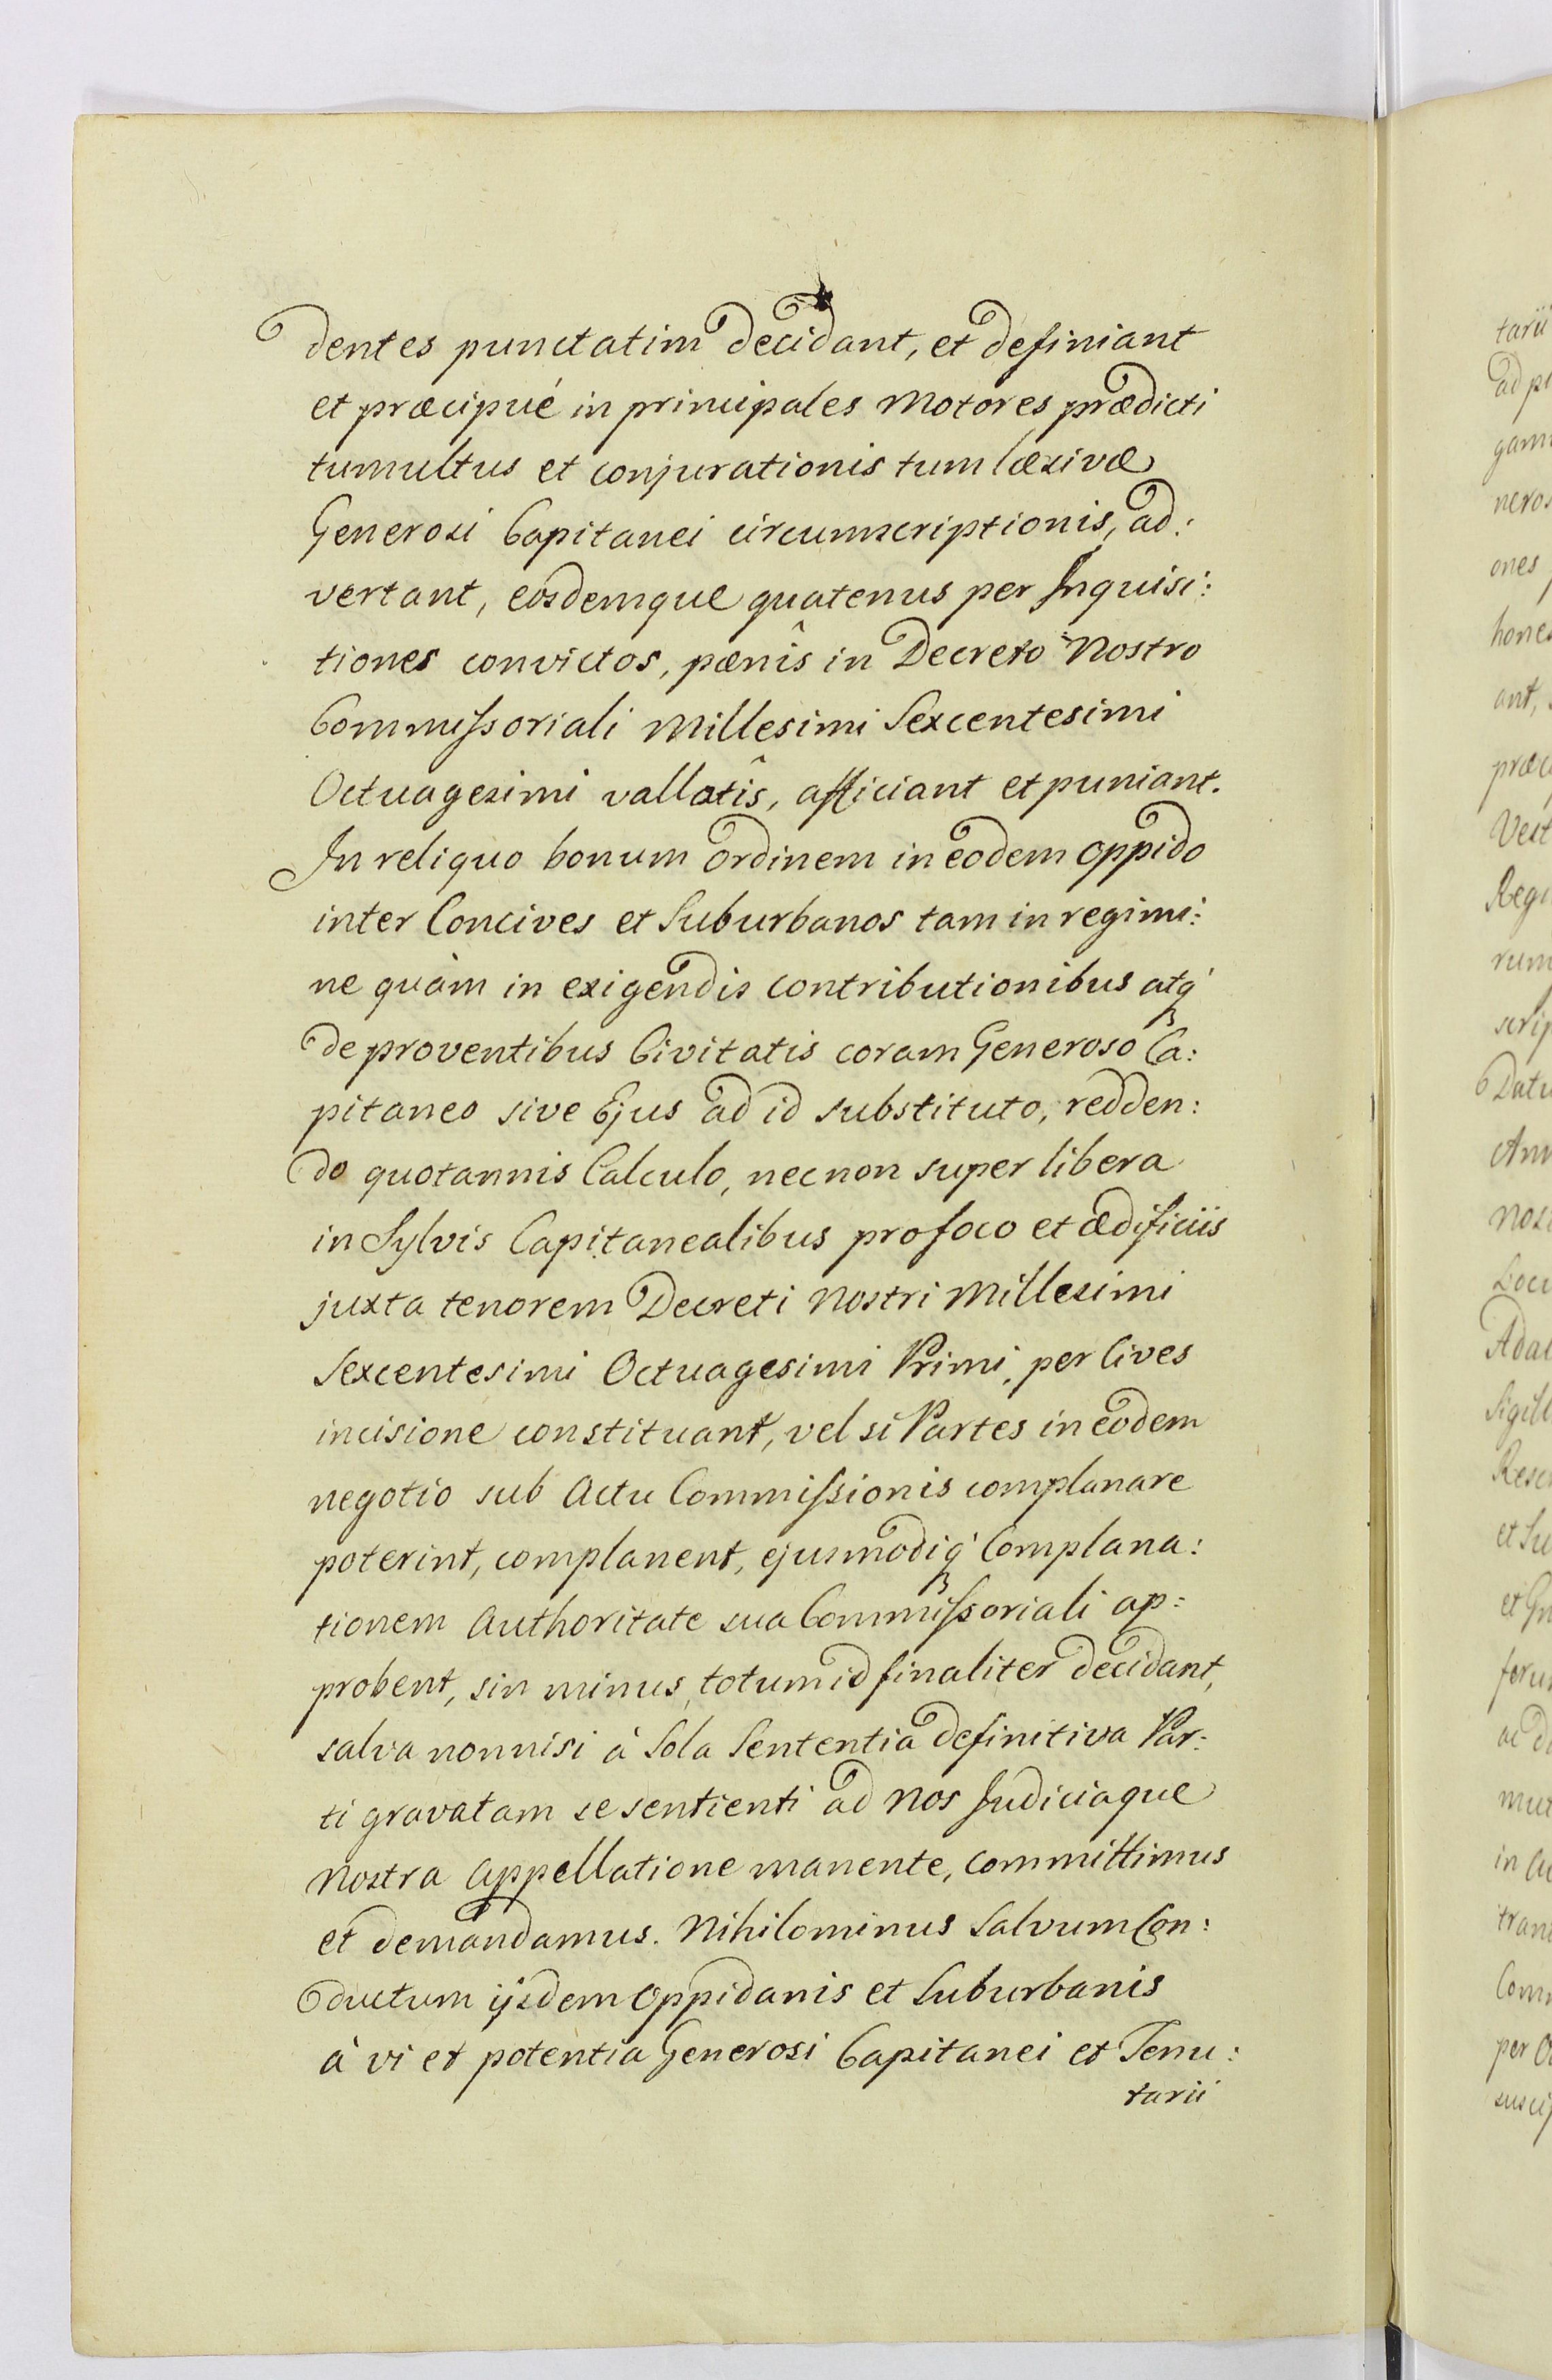 dentes punctatim decidant, et definiant
et præcipué in principales Motores prædicti
tumultus et conjurationis tum læsivæ
Generosi Capitanei circumscriptionis, ad:
vertant, eosdemque quatenus per Inquisi:
tiones convictos, pœnîs in Decreto Nostro
Commissoriali Millesimi Sexcentesimi
Octuagesimi vallatîs, afficiant et puniant.
In reliquo bonum ordinem in eodem oppido
inter Concives et Suburbanos tam in regimi:
ne quàm in exigendis contributionibus atq́
de proventibus Civitatis coram Generoso Ca:
pitaneo sive Ejus ad id substituto, redden:
do quotannis Calculo, necnon super libera
in Sylvis Capitanealibus pro foco et ædificiis
juxta tenorem Decreti Nostri Millesimi
Sexcentesimi Octuagesimi Primi, per Cives
incisione constituant, vel si Partes in eodem
negotio sub Actu Commissionis complanare
poterint, complanent, ejusmodiq́ Complana:
tionem Authoritate sua Commissoriali ap:
probent, sin minus, totum id finaliter decidant,
salva nonnisi à Sola Sententia definitiva Par:
ti gravatam se sentienti ad Nos Judiciaque
Nostra Appellatione manente, committimus
et demandamus. Nihilominus Salvum Con:
ductum ijsdem Oppidanis et Suburbanis
à vi et potentia Generosi Capitanei et Tenu:
tarii
tarii
ad
gam
neros
ones
hone
ant,
præc
Vest
Reg
rum
scrip
Datu
Ann
Nos
Loc
Adal
Sigill
et Su
ac d
mut
in
tran
Com
per
susci